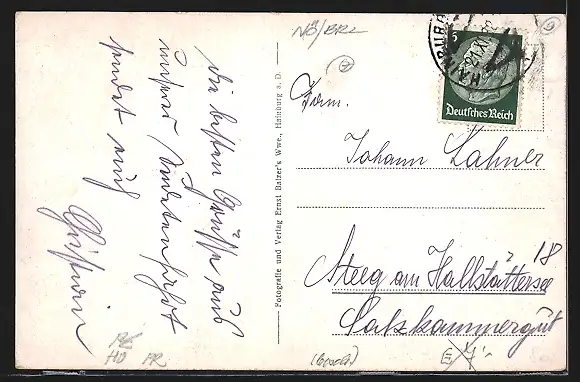 NÖ/BRL
die besten Grüße aus
unserer
sendet euch
Christian
Fotografie und Verlag Ernst Balzer's Wwe., Hainburg a. D.
HAINBURG
21.XI
5
Deutsches Reich
Fam.
Johann Lahner
18
Steeg am Hallstättersee
Salzkammergut
HD PR